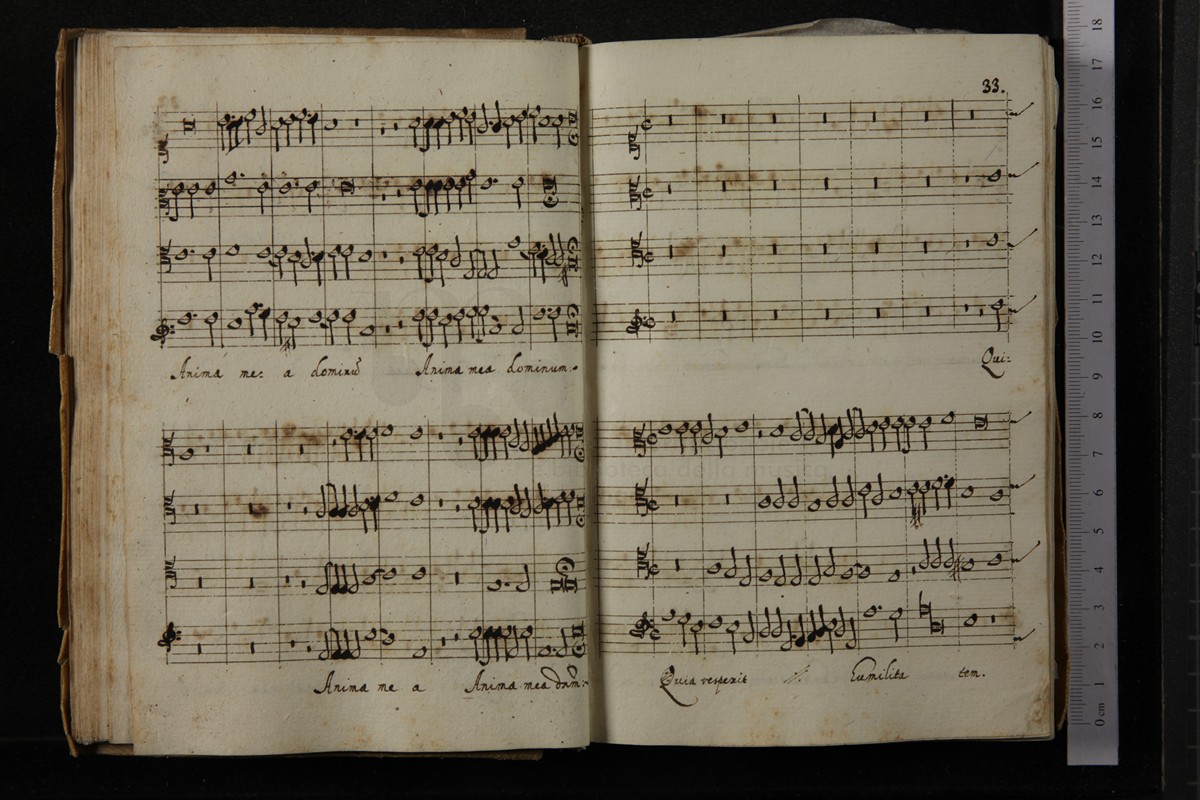 33.
Anima me: a dominũ Anima mea dominum.
Qui:
Anima me a Anima mea dnm:
Quia respexit // humilita tem.
biblioteca della musica
0 cm 1 2 3 4 5 6 7 8 9 10 11 12 13 14 15 16 17 18